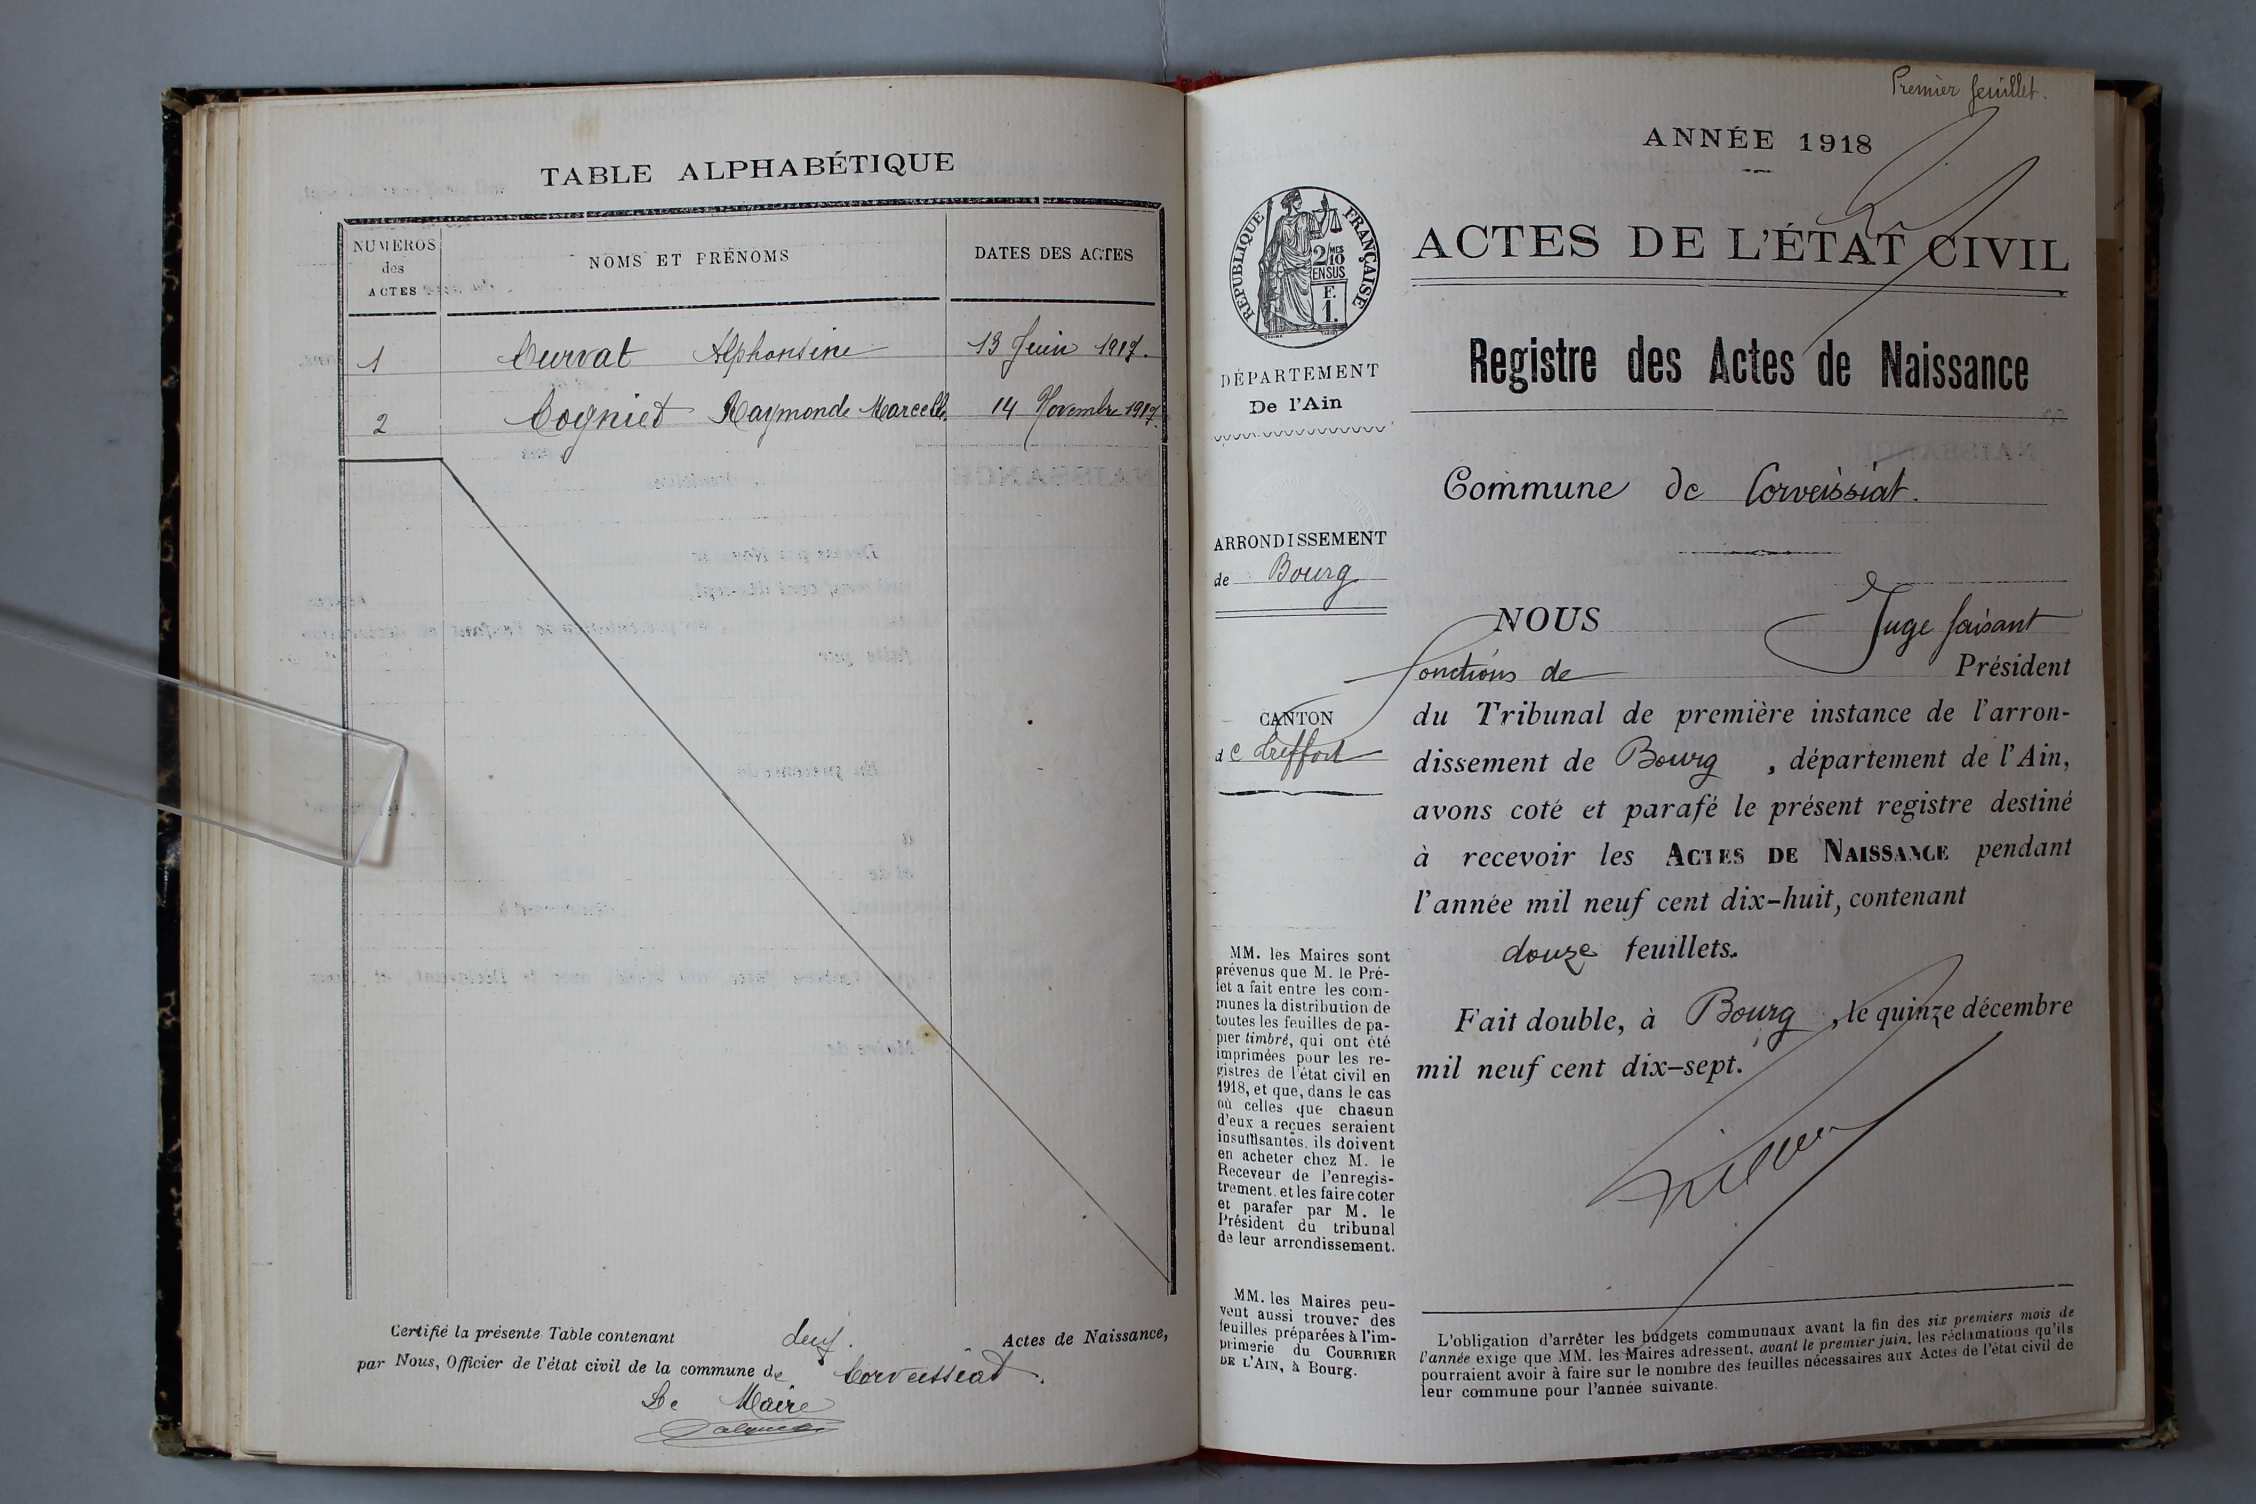 TABLE ALPHABÉTIQUE
NUMÉROS
des
ACTES
NOMS ET PRÉNOMS
DATES DES ACTES
1 Curvat Alphonsine 13 Juin 1917.
2 Cogniet Raymonde Marcelle 14 Novembre 1917.
Certifié la présente Table contenant deux. Actes de Naissance,
par Nous, Officier de l'état civil de la commune de Corveissiat.
Le Maire
Premier feuillet.
ANNÉE 1918
ACTES DE L'ÉTAT CIVIL
Registre des Actes de Naissance
RÉPUBLIQUE FRANÇAISE
2/10
MES
EN SUS
F.
1.
DÉPARTEMENT
De l'Ain
ARRONDISSEMENT
de Bourg
CANTON
de Treffort
MM. les Maires sont
prévenus que M. le Pré-
fet a fait entre les com-
munes la distribution de
toutes les feuilles de pa-
pier timbré, qui ont été
imprimées pour les re-
gistres de l'état civil en
1918, et que, dans le cas
où celles que chacun
d'eux a reçues seraient
insuffisantes, ils doivent
en acheter chez M. le
Receveur de l'enregis-
trement, et les faire coter
et parafer par M. le
Président du tribunal
de leur arrondissement.
MM. les Maires peu-
vent aussi trouver des
feuilles préparées à l'im-
primerie du COURRIER
DE L'AIN, à Bourg.
Commune de Corveissiat.
NOUS Juge faisant
fonctions de Président
du Tribunal de première instance de l'arron-
dissement de Bourg, département de l'Ain,
avons coté et parafé le présent registre destiné
à recevoir les ACTES DE NAISSANCE pendant
l'année mil neuf cent dix-huit, contenant
douze feuillets.
Fait double, à Bourg, le quinze décembre
mil neuf cent dix-sept.
L'obligation d'arrêter les budgets communaux avant la fin des six premiers mois de
l'année exige que MM. les Maires adressent, avant le premier juin, les réclamations qu'ils
pourraient avoir à faire sur le nombre des feuilles nécessaires aux Actes de l'état civil de
leur commune pour l'année suivante.